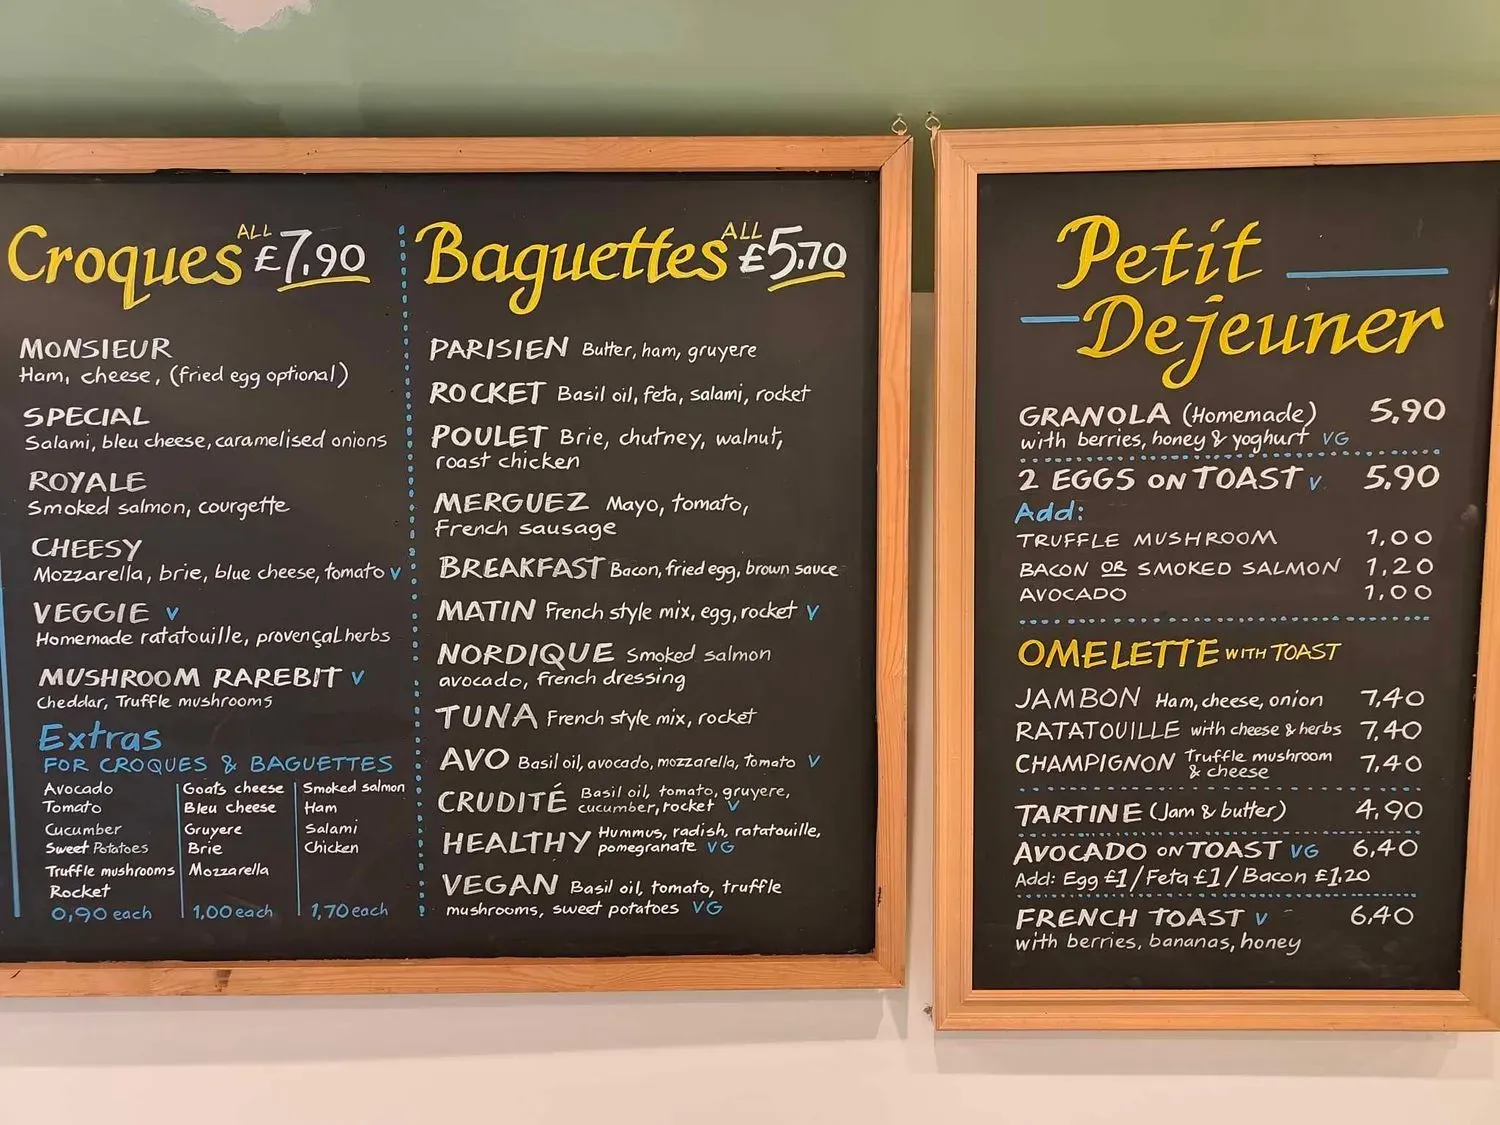 Croques ALL £7.90
MONSIEUR
Ham, cheese, (fried egg optional)
SPECIAL
Salami, bleu cheese, caramelised onions
ROYALE
Smoked salmon, courgette
CHEESY
Mozzarella, brie, blue cheese, tomato V
VEGGIE V
Homemade ratatouille, provençal herbs
MUSHROOM RAREBIT V
Cheddar, Truffle mushrooms
Extras
FOR CROQUES & BAGUETTES
Avocado
Tomato
Cucumber
Sweet Potatoes
Truffle mushrooms
Rocket
0,90 each
Goat's cheese
Bleu cheese
Gruyere
Brie
Mozzarella
1,00 each
Smoked salmon
Ham
Salami
Chicken
1,70 each
Baguettes ALL £5.70
PARISIEN Butter, ham, gruyere
ROCKET Basil oil, feta, salami, rocket
POULET Brie, chutney, walnut,
roast chicken
MERGUEZ Mayo, tomato,
French sausage
BREAKFAST Bacon, fried egg, brown sauce
MATIN French style mix, egg, rocket V
NORDIQUE Smoked salmon
avocado, French dressing
TUNA French style mix, rocket
AVO Basil oil, avocado, mozzarella, Tomato V
CRUDITÉ Basil oil, tomato, gruyere,
cucumber, rocket V
HEALTHY Hummus, radish, ratatouille,
pomegranate VG
VEGAN Basil oil, tomato, truffle
mushrooms, sweet potatoes VG
Petit
Dejeuner
GRANOLA (Homemade) 5,90
with berries, honey & yoghurt VG
2 EGGS ON TOAST V 5,90
Add:
TRUFFLE MUSHROOM 1,00
BACON OR SMOKED SALMON 1,20
AVOCADO 1,00
OMELETTE WITH TOAST
JAMBON Ham, cheese, onion 7,40
RATATOUILLE with cheese & herbs 7,40
CHAMPIGNON Truffle mushroom 7,40
& cheese
TARTINE (Jam & butter) 4,90
AVOCADO ON TOAST VG 6,40
Add: Egg £1 / Feta £1 / Bacon £1.20
FRENCH TOAST V 6,40
with berries, bananas, honey